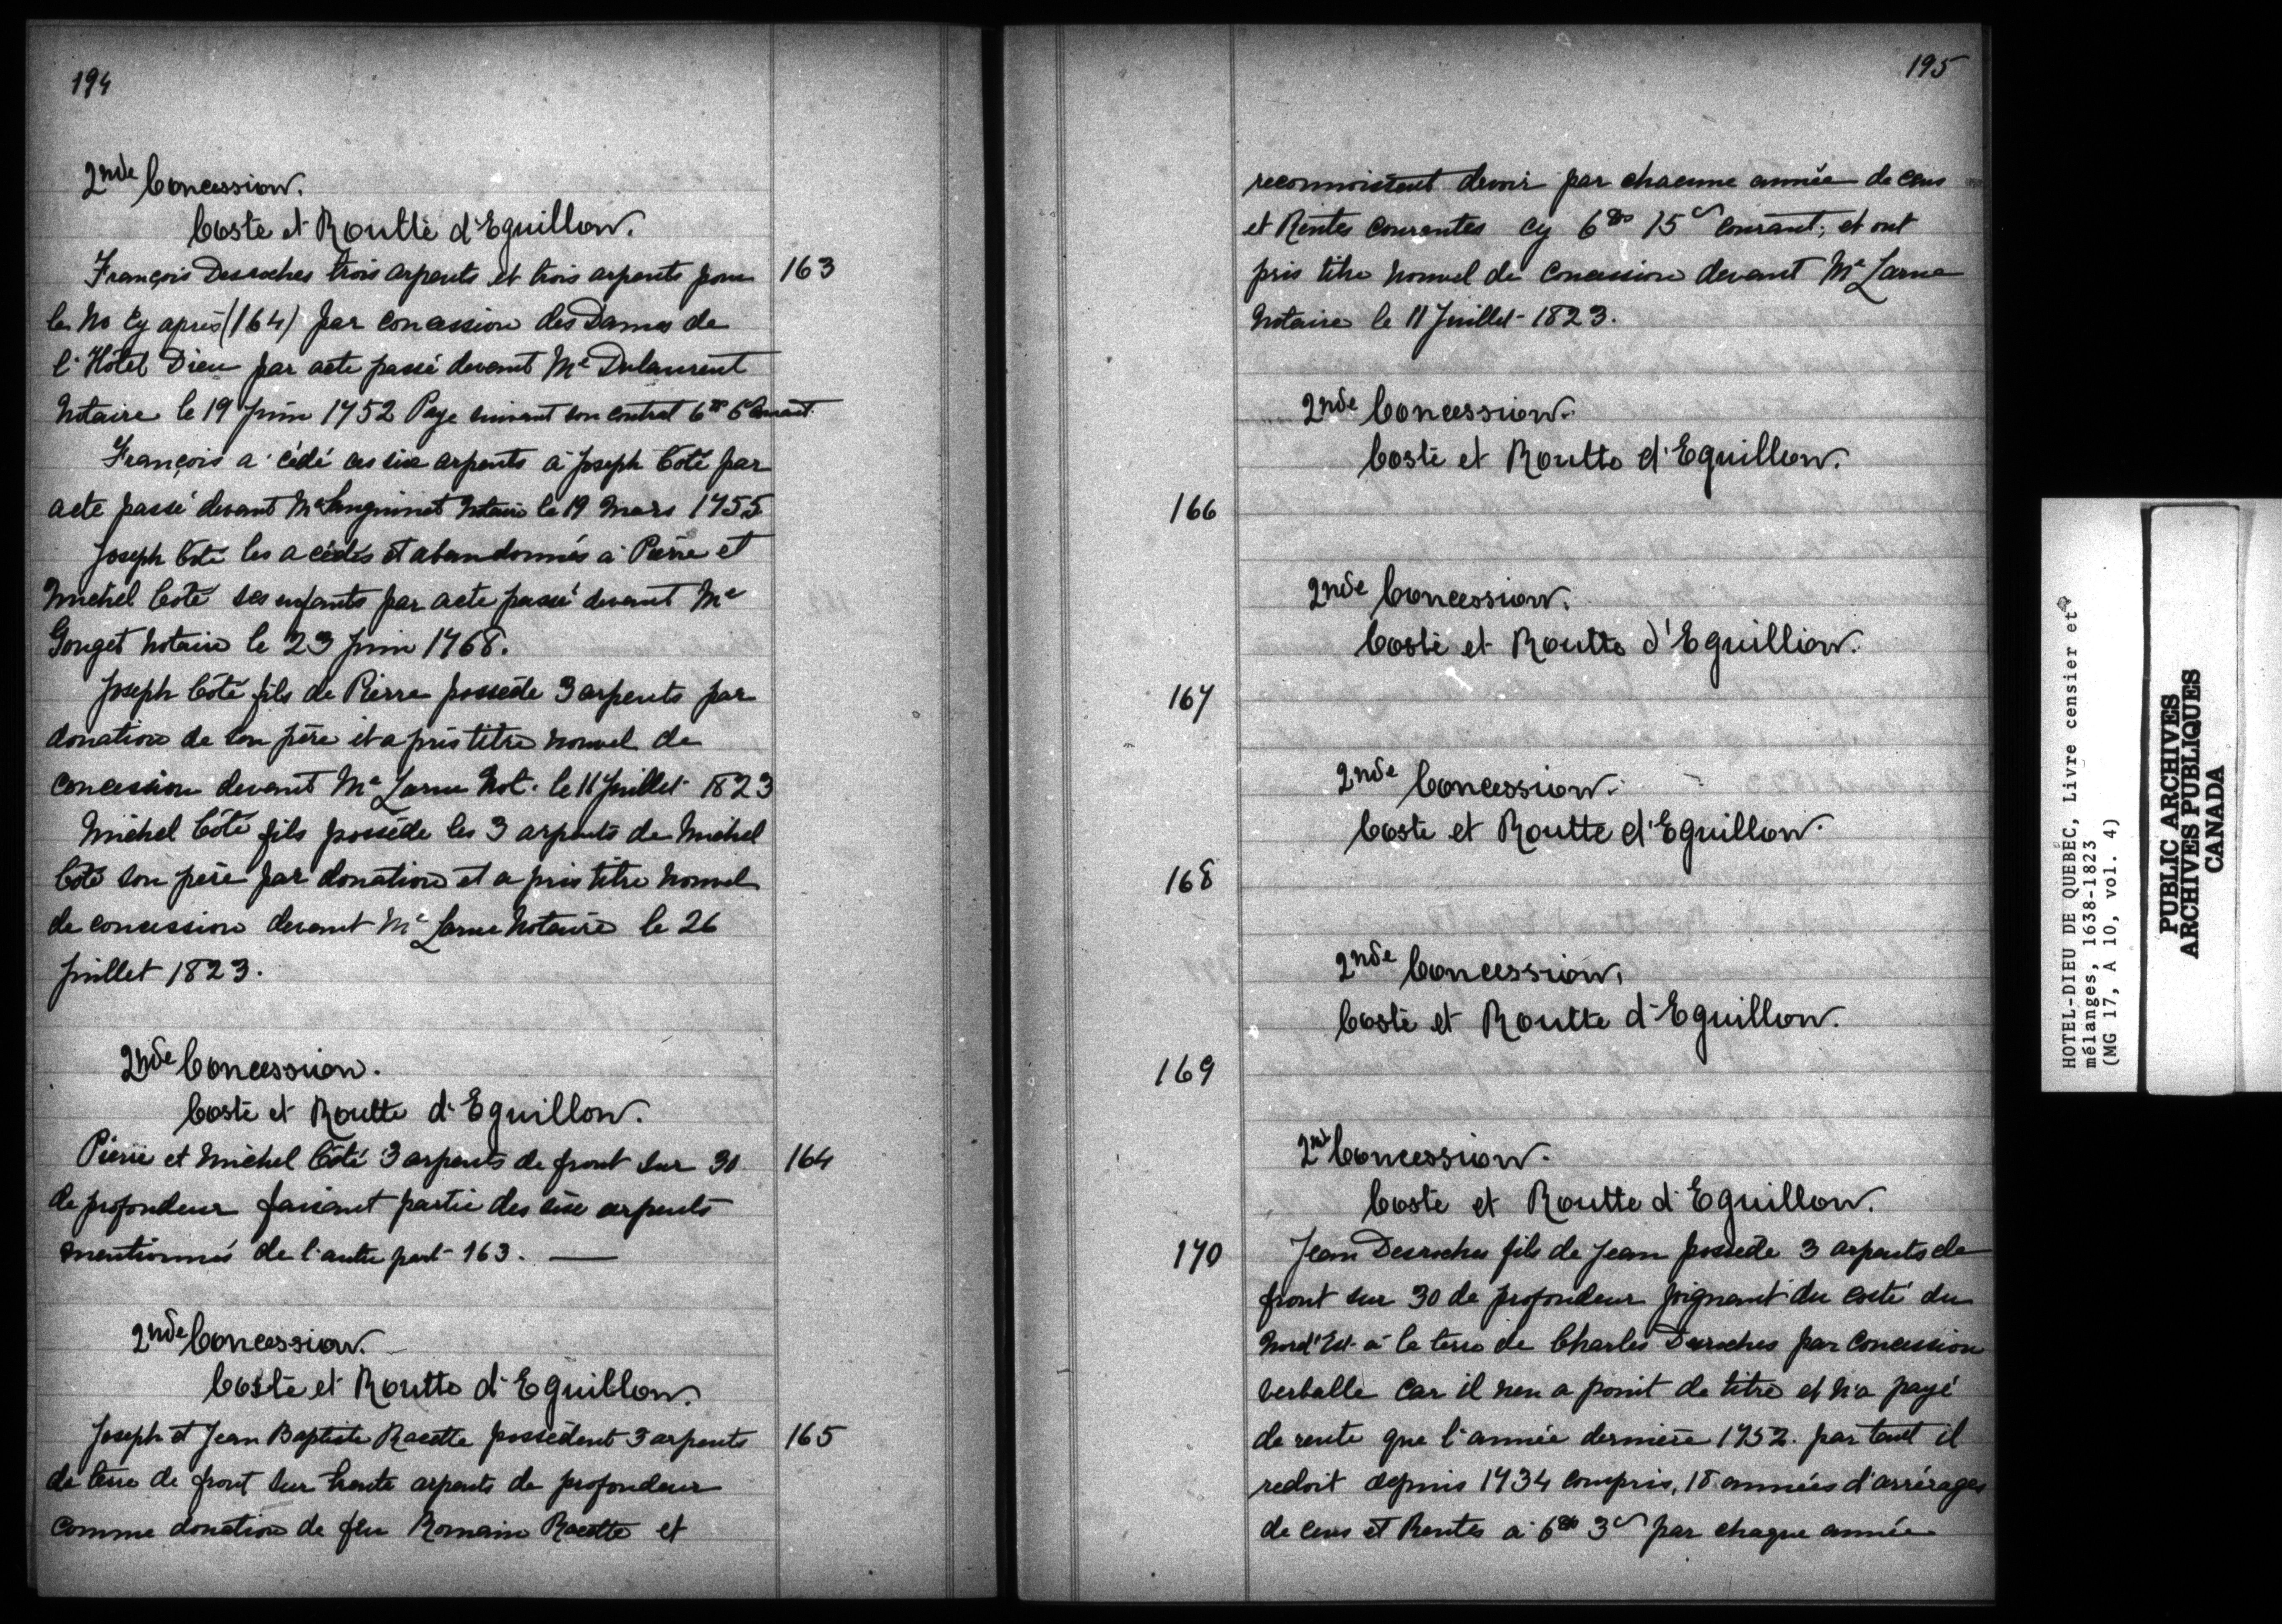 194
2nde Concession.
Coste et Routte d'Eguillon.
François Desroches trois arpents et trois arpents pour 163
le No Cy après (164) par concession des Dames de
l'Hôtel Dieu par acte passé devant Me Dulaurent
Notaire le 19 Juin 1752 Paye suivant son contrat 6
François a cédé ces six arpents à Joseph Coté par
acte passé devant Me Sanguinet Notaire le 19 Mars 1755
Joseph Coté les a cédés et abandonnés à Pierre et
Michel Coté ses enfants par acte passé devant Me
Gouget Notaire le 23 Juin 1768.
Joseph Côté fils de Pierre possède 3 arpents par
donation de son père et a pris titre nouvel de
concession devant Me Larue Not. le 11 Juillet 1823
Michel Côté fils possède les 3 arpents de Michel
Coté son père par donation et a pris titre nouvel
de concession devant Me Larue Notaire le 26
Juillet 1823.
2nde Concession.
Coste et Routte d'Eguillon.
Pierre et Michel Côté 3 arpents de front sur 30 164
de profondeur faisant partie des six arpents
mentionnés de l'autre part 163. —
2nde Concession.
Coste et Routte d'Eguillon.
Joseph et Jean Baptiste Racette possèdent 3 arpents 165
de terre de front sur trente arpents de profondeur
comme donation de feu Romain Racette et
195
reconnoissent devoir par chacune année de cens
et Rentes courantes cy 6 15 courant, et ont
pris titre nouvel de concession devant Me Larue
Notaire le 11 Juillet 1823.
2nde Concession.
Coste et Routte d'Eguillon.
166
2nde Concession.
Coste et Routte d'Eguillion.
167
2nde Concession.
Coste et Routte d'Eguillon.
168
2nde Concession.
Coste et Routte d'Eguillon.
169
2nde Concession.
Coste et Routte d'Eguillon.
170 Jean Desroches fils de Jean possède 3 arpents de
front sur 30 de profondeur joignant du costé du
Nord'Est à la terre de Charles Desroches par concession
verballe car il n'en a point de titre et n'a payé
de rente que l'année dernière 1752. partant il
redoit depuis 1734 compris, 18 années d'arrérages
de cens et Rentes à 6 3 par chaque année
HOTEL-DIEU DE QUEBEC, Livre censier et
mélanges, 1638-1823
(MG 17, A 10, vol. 4)
PUBLIC ARCHIVES
ARCHIVES PUBLIQUES
CANADA